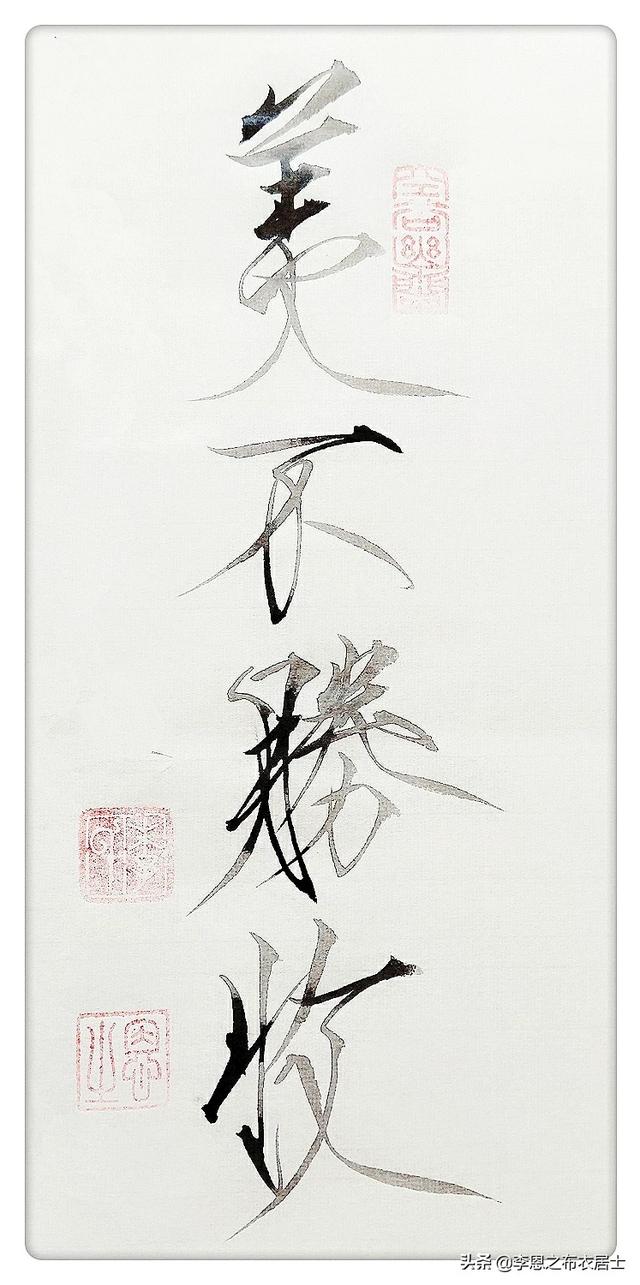 美不勝收
恩之
头条 @李恩之布衣居士